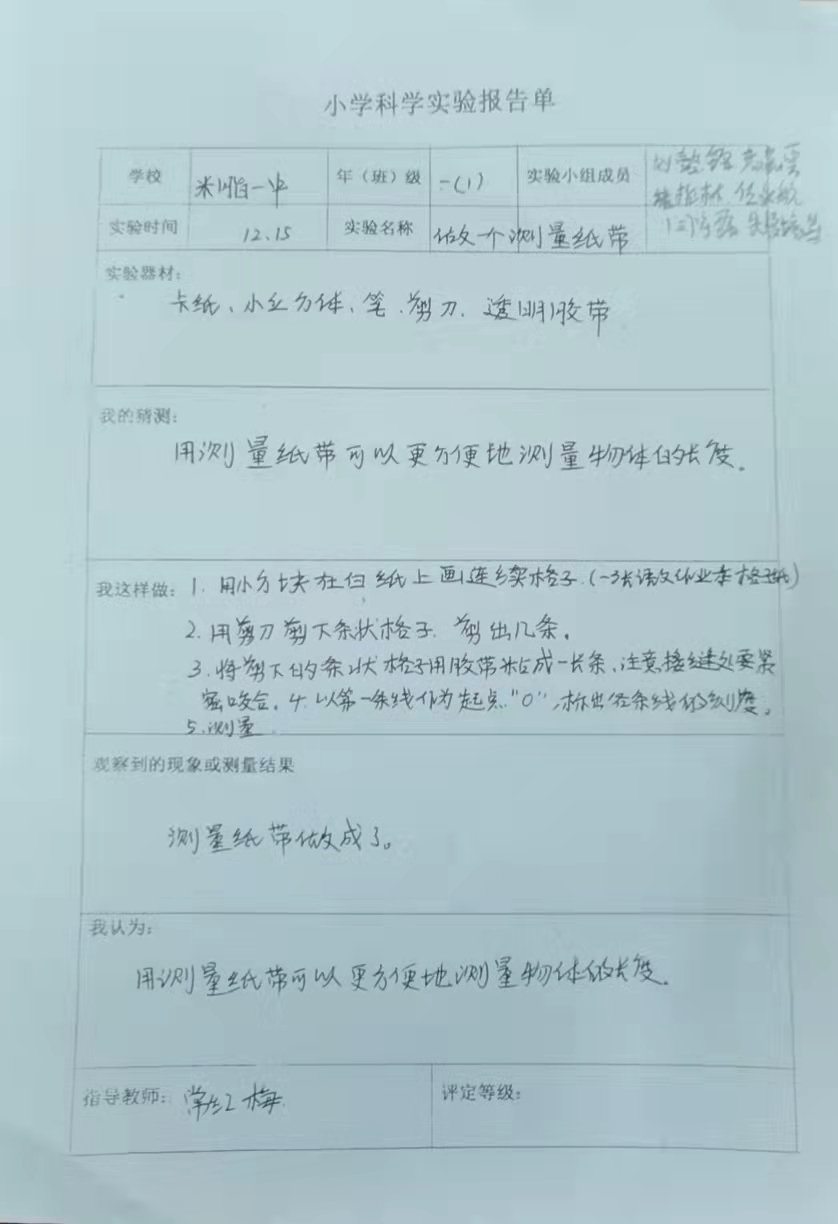 小学科学实验报告单
学校 米脂一中 年（班）级 一(1) 实验小组成员
实验时间 12.15 实验名称 做一个测量纸带
实验器材：
卡纸、小立方体、笔、剪刀、透明胶带
我的猜测：
用测量纸带可以更方便地测量物体的长度。
我这样做：1. 用小方块在白纸上画连续格子.(一张语文作业本格子纸)
2. 用剪刀剪下条状格子. 剪出几条。
3. 将剪下的条状格子用胶带粘成一长条，注意接缝处要紧
密咬合。4. 以第一条线作为起点"0"，标出各条线的刻度。
5. 测量
观察到的现象或测量结果
测量纸带做成了。
我认为：
用测量纸带可以更方便地测量物体的长度。
指导教师：常红梅 评定等级：